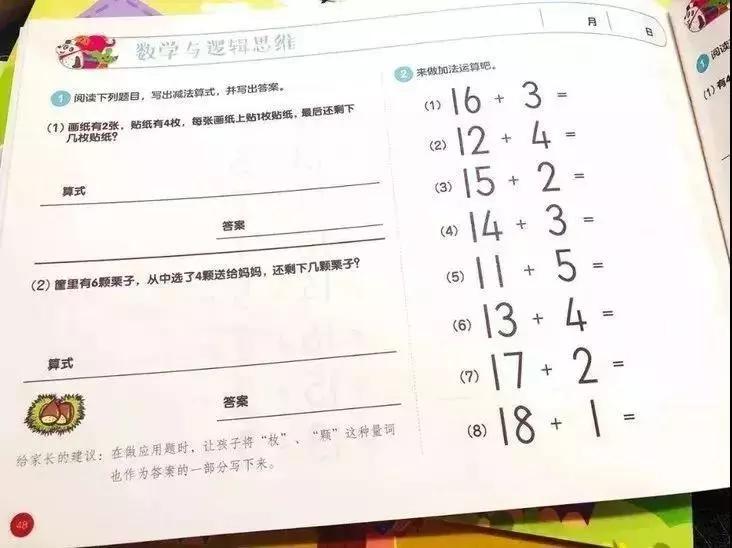 数学与逻辑思维
月 日
1 阅读下列题目，写出减法算式，并写出答案。
(1) 画纸有2张，贴纸有4枚，每张画纸上贴1枚贴纸，最后还剩下
几枚贴纸？
算式
答案
(2) 筐里有6颗栗子，从中选了4颗送给妈妈，还剩下几颗栗子？
算式
答案
给家长的建议：在做应用题时，让孩子将“枚”、“颗”这种量词
也作为答案的一部分写下来。
48
2 来做加法运算吧。
(1) 16 + 3 =
(2) 12 + 4 =
(3) 15 + 2 =
(4) 14 + 3 =
(5) 11 + 5 =
(6) 13 + 4 =
(7) 17 + 2 =
(8) 18 + 1 =
1 阅读
(1) 有